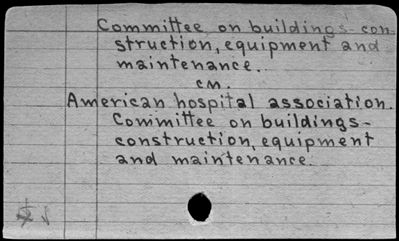 Committee on buildings-con
struction, equipment and
maintenance.
cm.
American hospital association.
Committee on buildings-
construction, equipment
and maintenance.